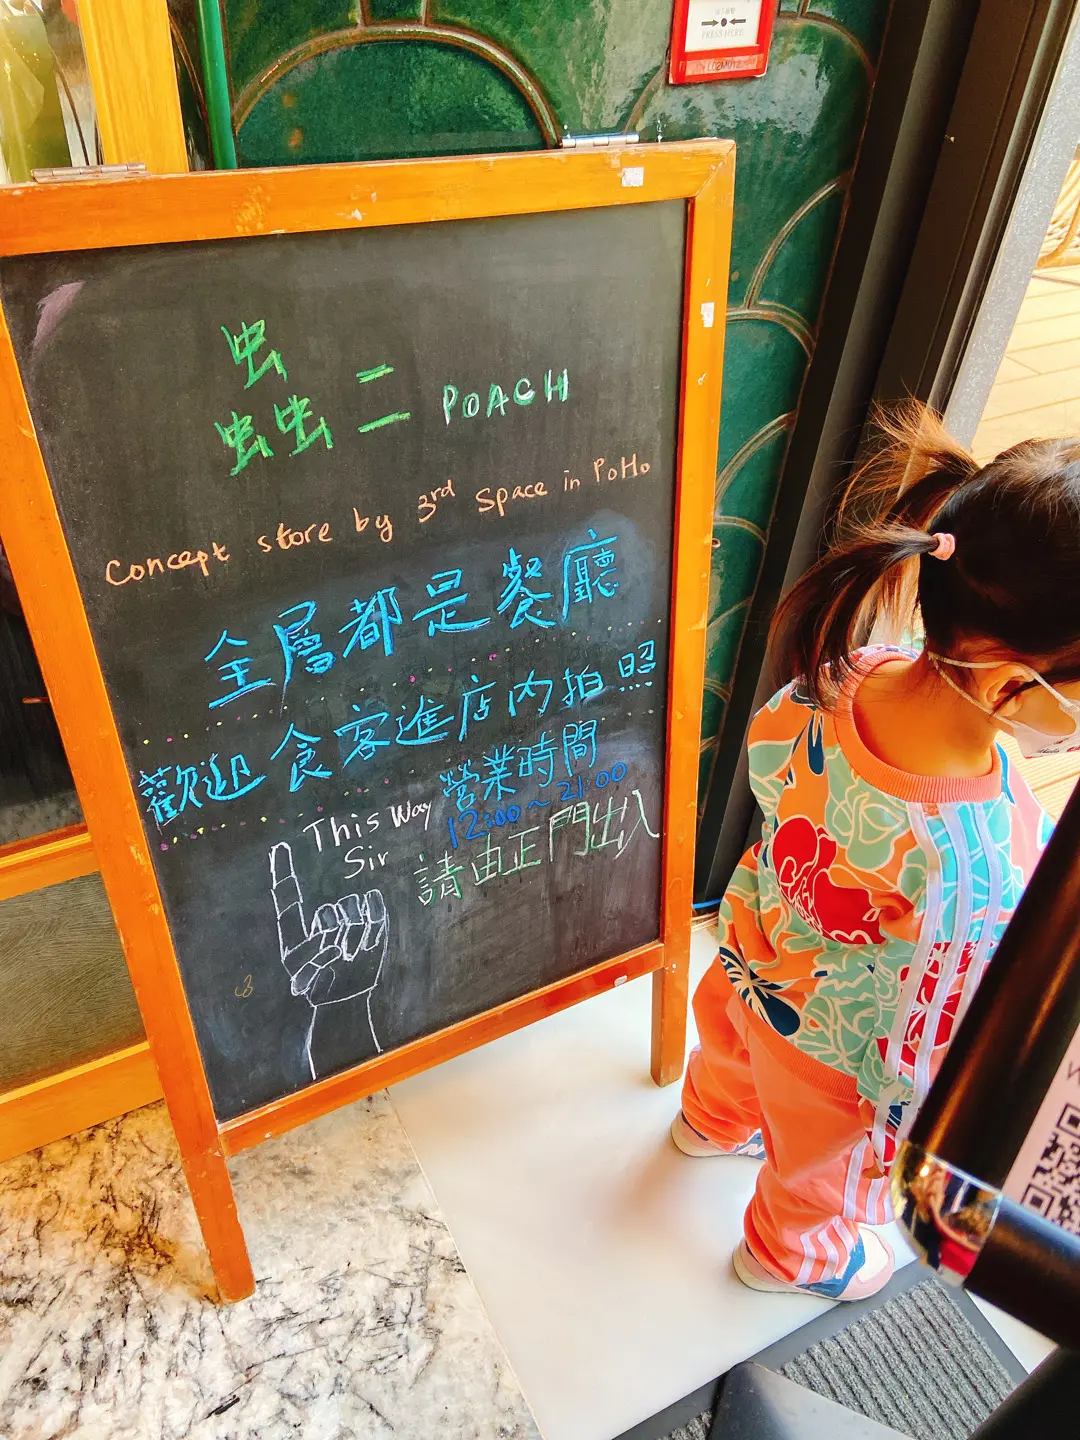 PRESS HERE
LC2M012
蟲二 POACH
Concept store by 3rd Space in PoHo
全層都是餐廳
歡迎食客進店內拍照
營業時間
12:00~21:00
This Way
Sir
請由正門出入